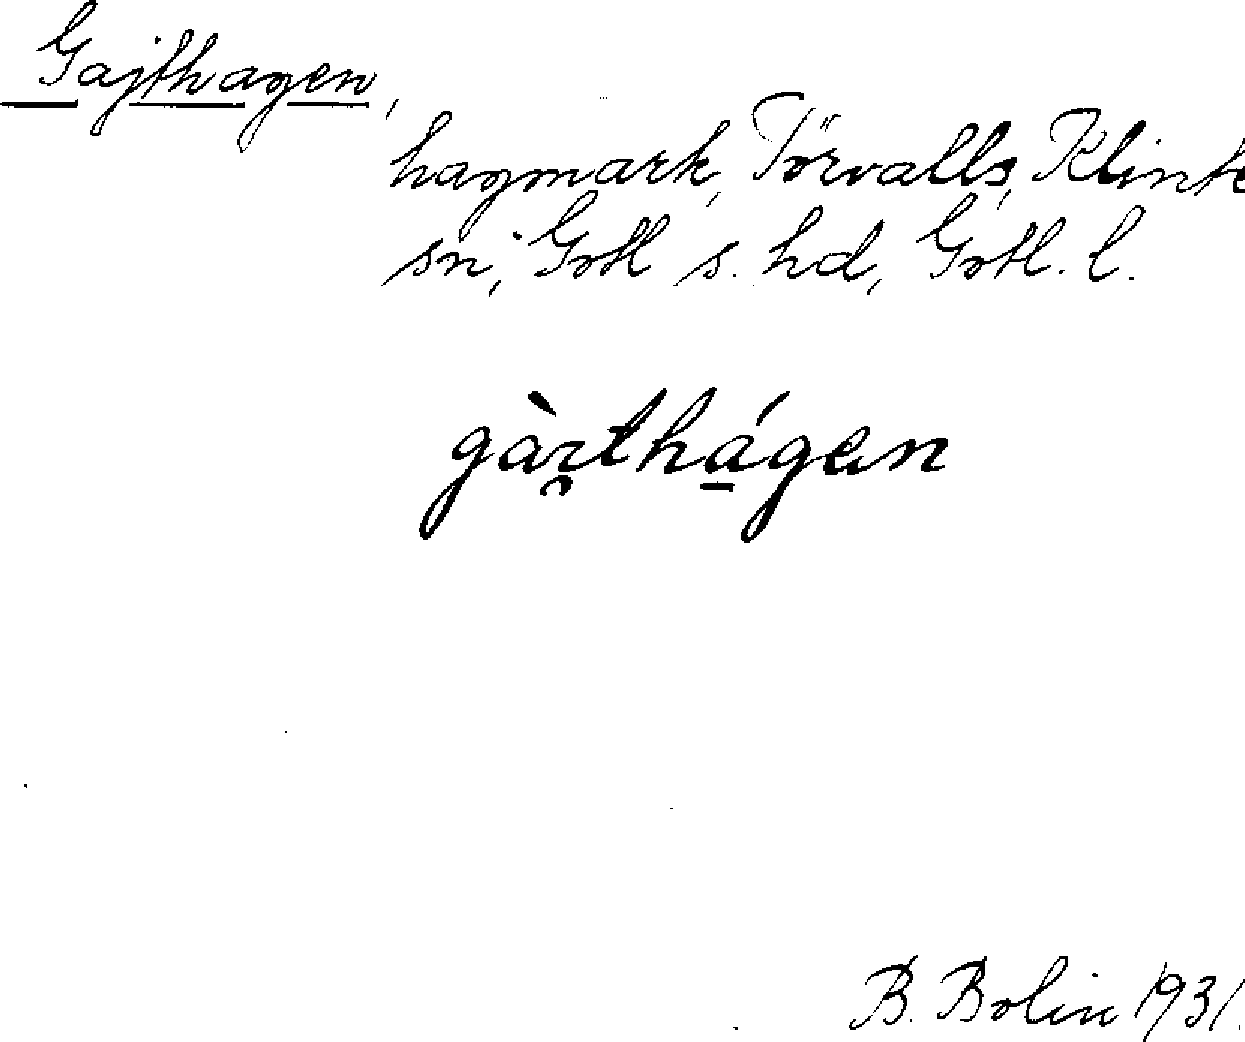 Gajthagen,
hagmark, Törvalls, Klinte
sn, Gotl s. hd, Gotl. l.
gàı̯thá̱gen
B. Bolin 1931.